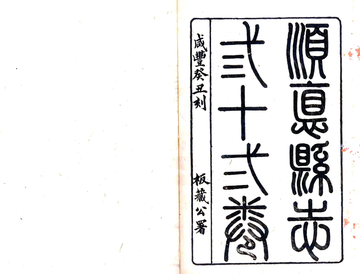 順悳縣志
弎十弍卷
咸豐癸丑刻　板藏公署